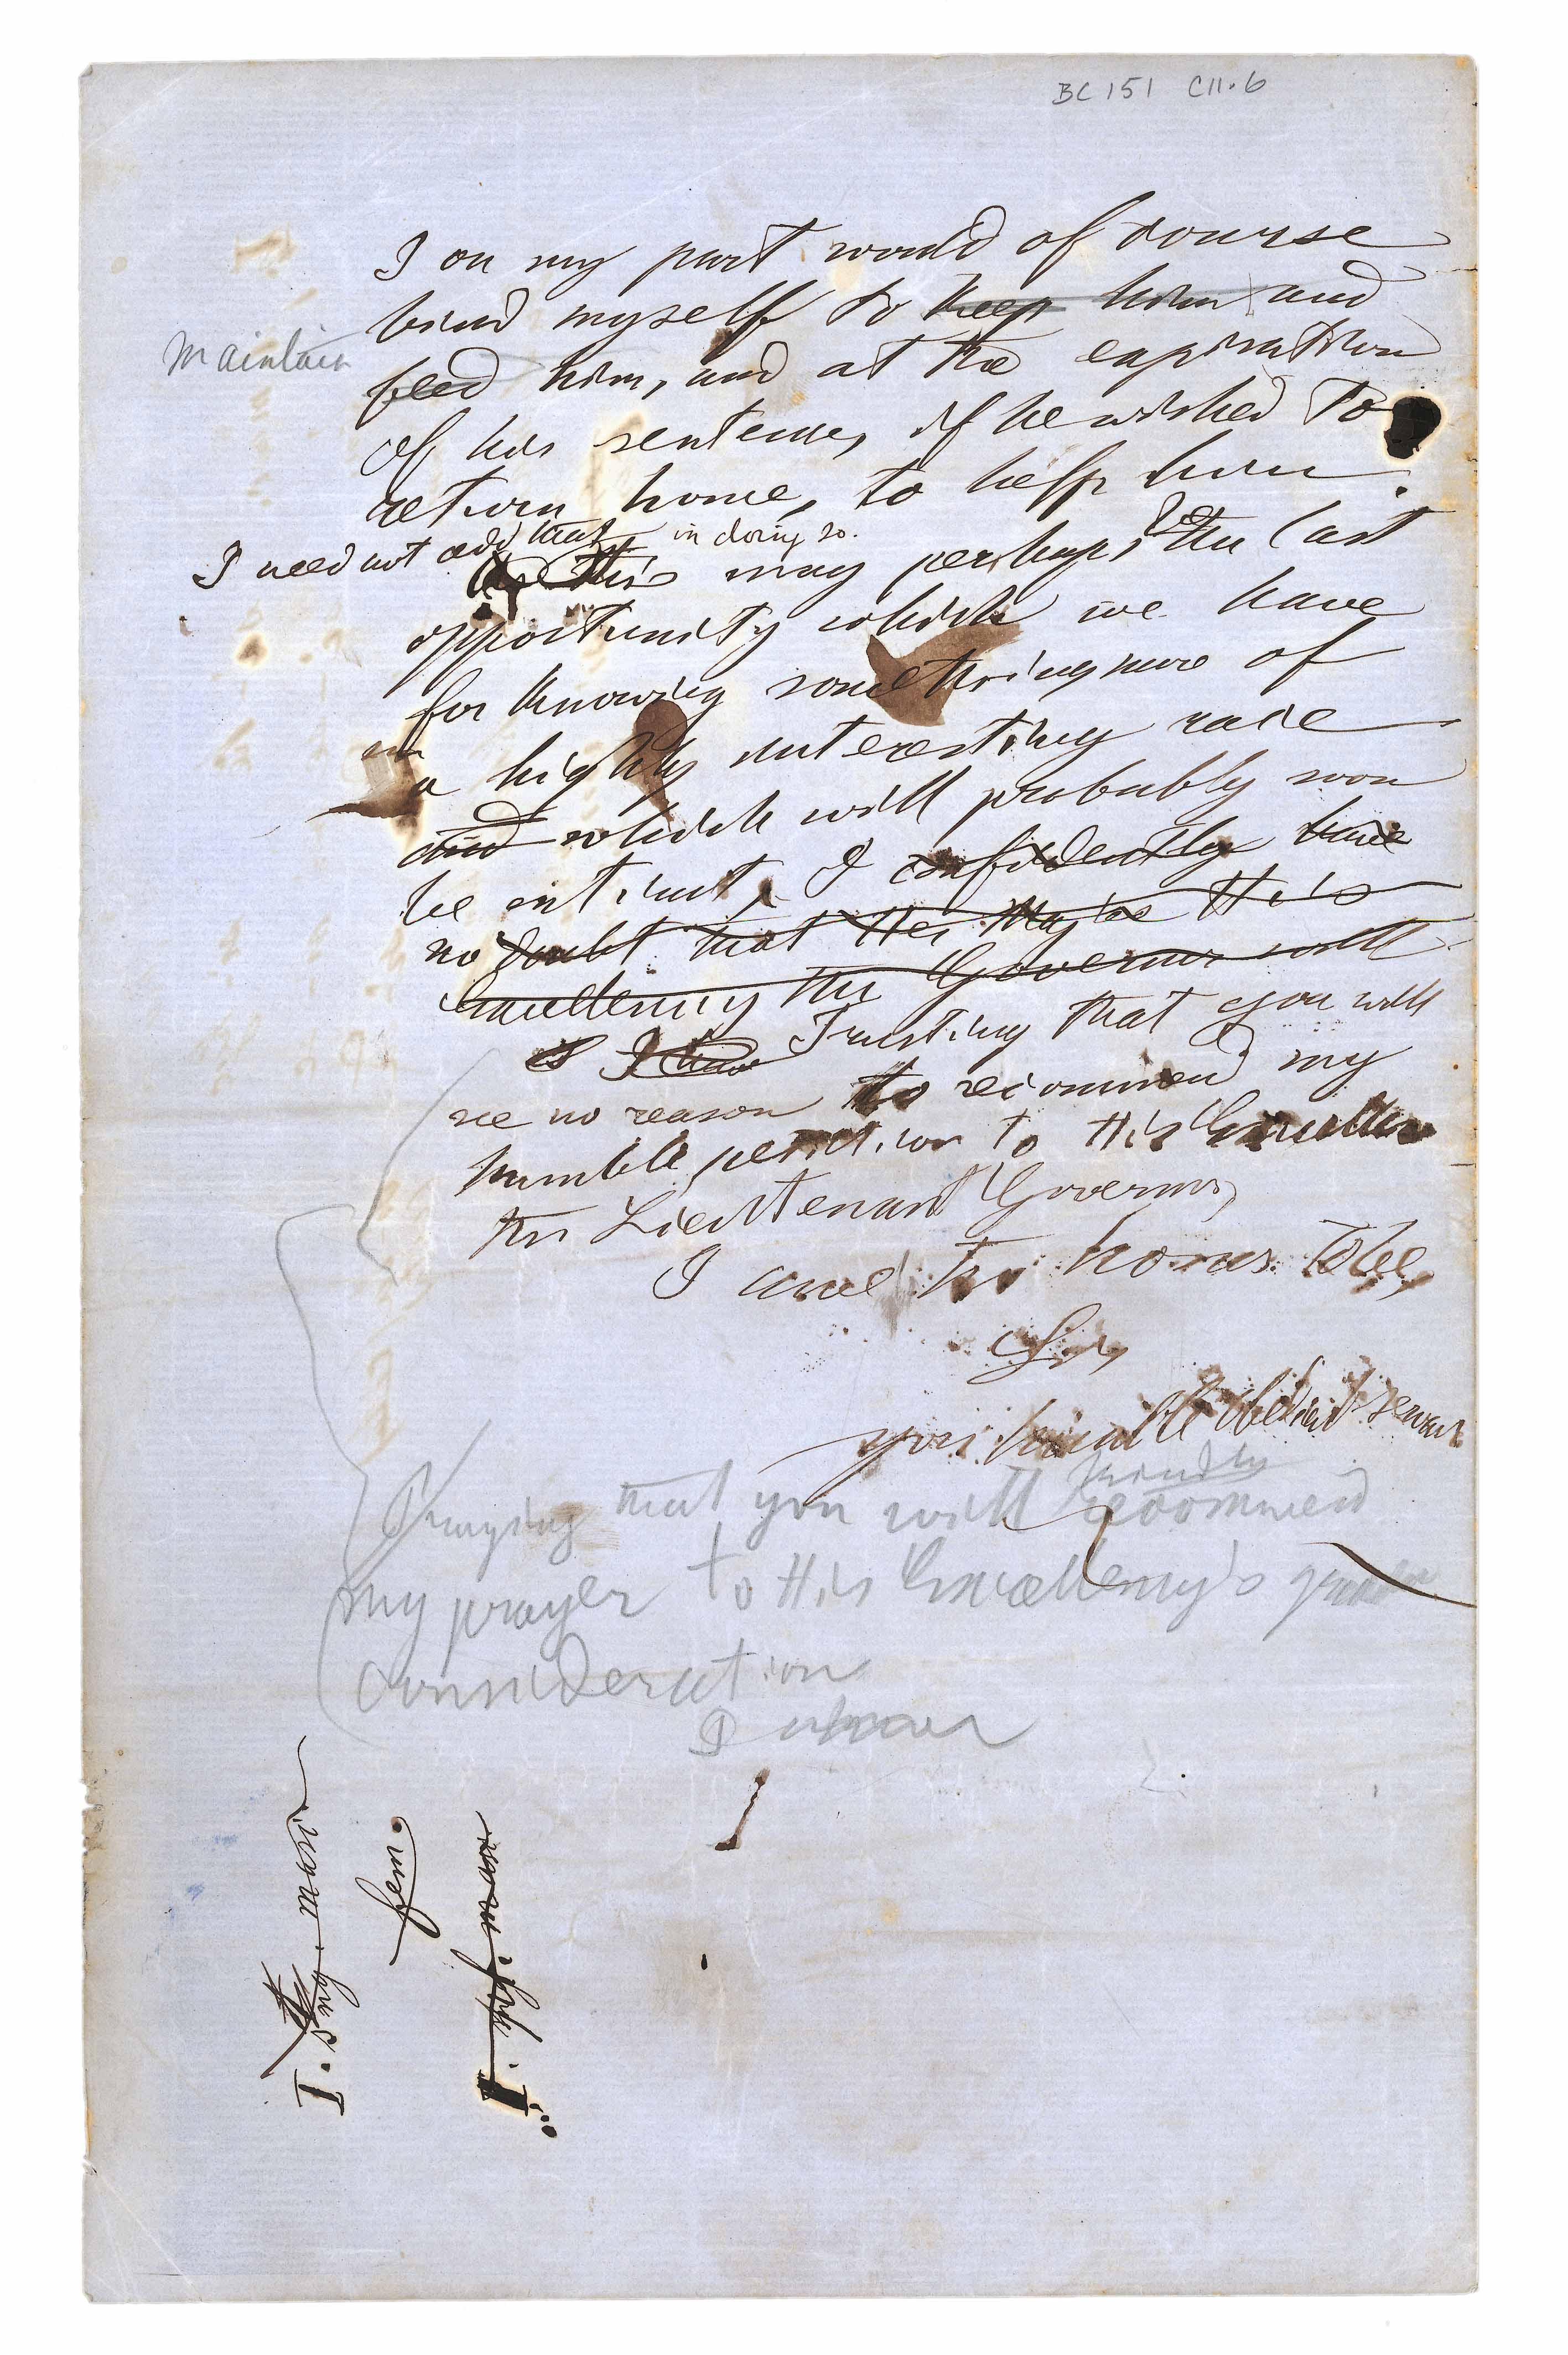 BC 151 C11.6
I on my part would of course
bind myself to keep him and
maintain
feed him, and at the expiration
of his sentence, if he wished to
return home, to help him
in doing so.
I need not add that
this may perhaps be the last
opportunity which we have
for knowing something more of
an
a highly interesting race
and which will probably soon
be extinct, I confidently have
no doubt that His
Excellency the Governor will
I have Trusting that you will
see no reason to recommend my
humble petition to His Excellency
the Lieutenant Governor,
I have the honour to be,
Sir,
your humble obedient servant
kindly
Praying that you will recommend
my prayer to His Excellency's
consideration
I. man.
fem.
I. man